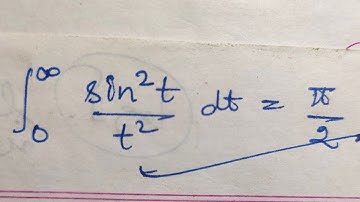 ∫₀^∞ sin²t/t² dt = π/2